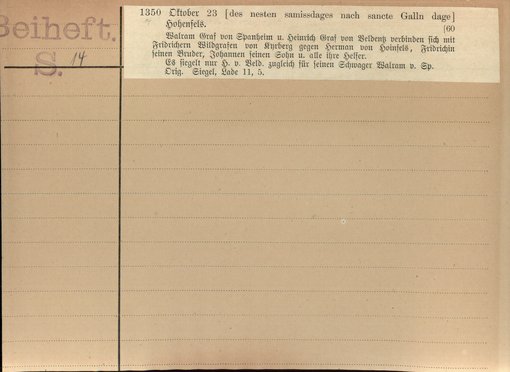 Beiheft.
S. 14
1350 Oktober 23 [des nesten samissdages nach sancte Galln dage]
Hohenfels. [60
Walram Graf von Spanheim u. Heinrich Graf von Veldentz verbinden sich mit
Fridrichern Wildgrafen von Kyrberg gegen Herman von Hoinfels, Fridrichin
seinen Bruder, Johannen seinen Sohn u. alle ihre Helfer.
Es siegelt nur H. v. Veld. zugleich für seinen Schwager Walram v. Sp.
Orig. Siegel, Lade 11, 5.